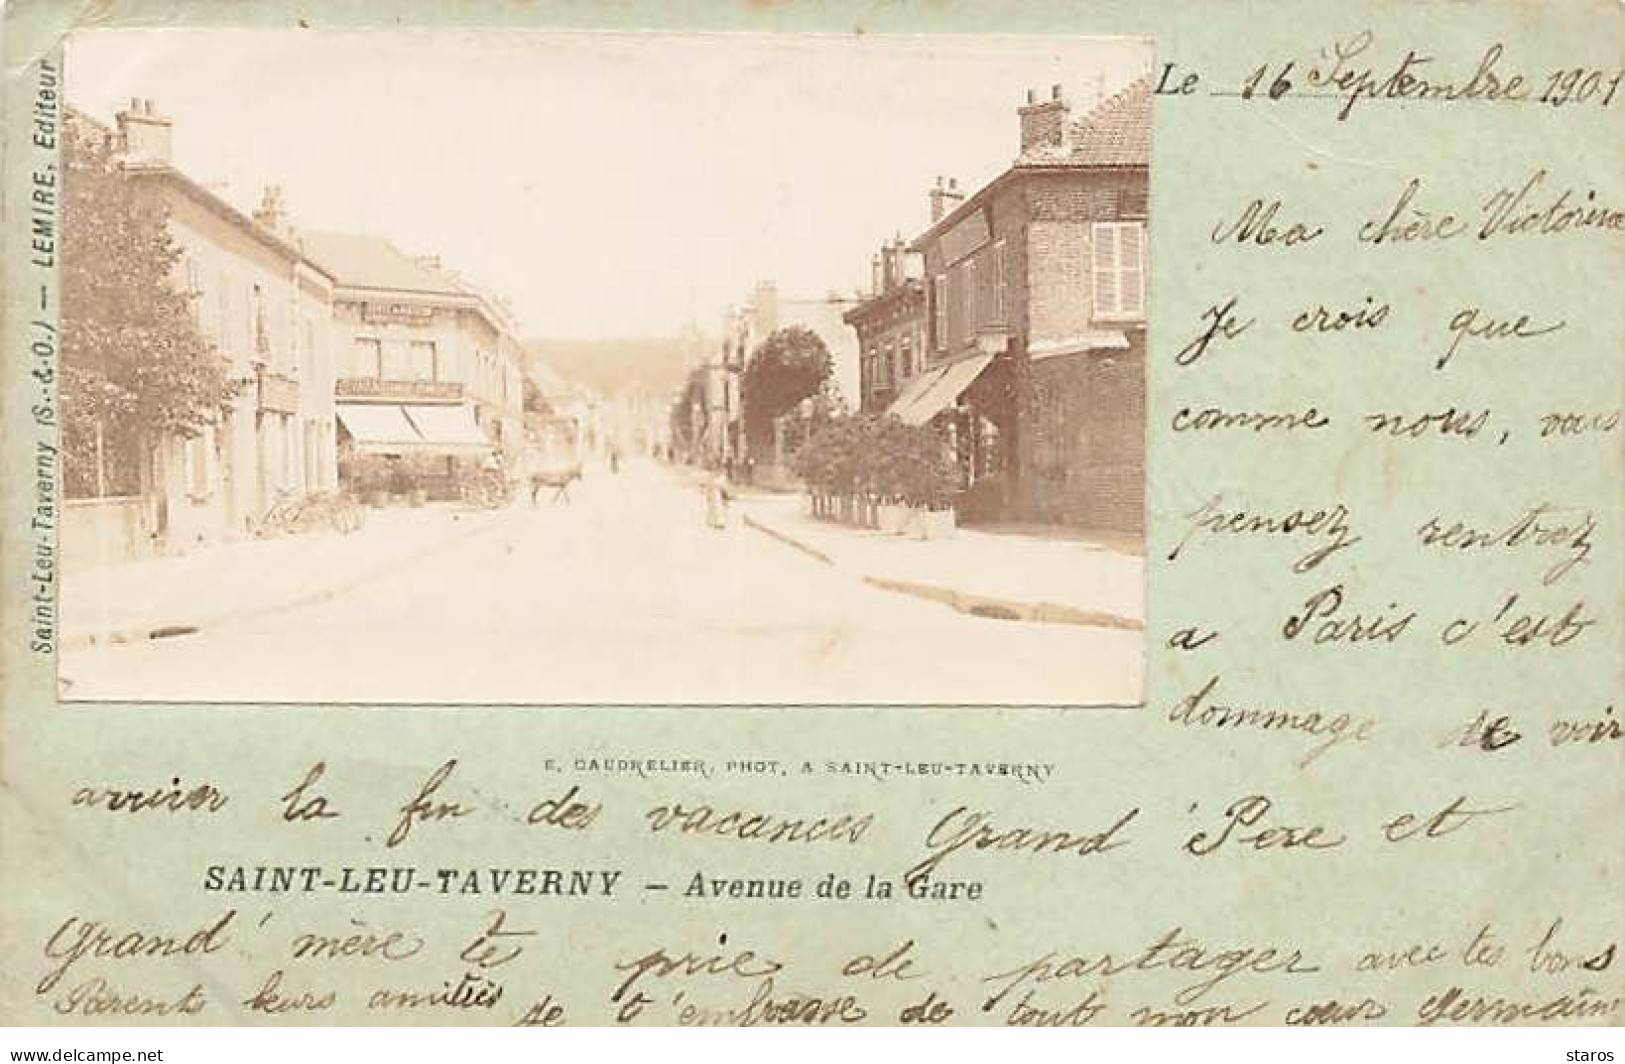 Saint-Leu-Taverny (S.-&-O.) — LEMIRE, Editeur
Le 16 Septembre 1901
Ma chère Victorine
Je crois que
comme nous, vous
pensez rentrez
a Paris c'est
dommage de voir
E. CAUDRELIER, PHOT. A SAINT-LEU-TAVERNY
arriver la fin des vacances Grand' Pere et
SAINT-LEU-TAVERNY — Avenue de la Gare
Grand' mère te prie de partager avec tes bons
Parents leurs amitiés je t'embrasse de tout mon cœur Germaine
https://www.delcampe.net
staros